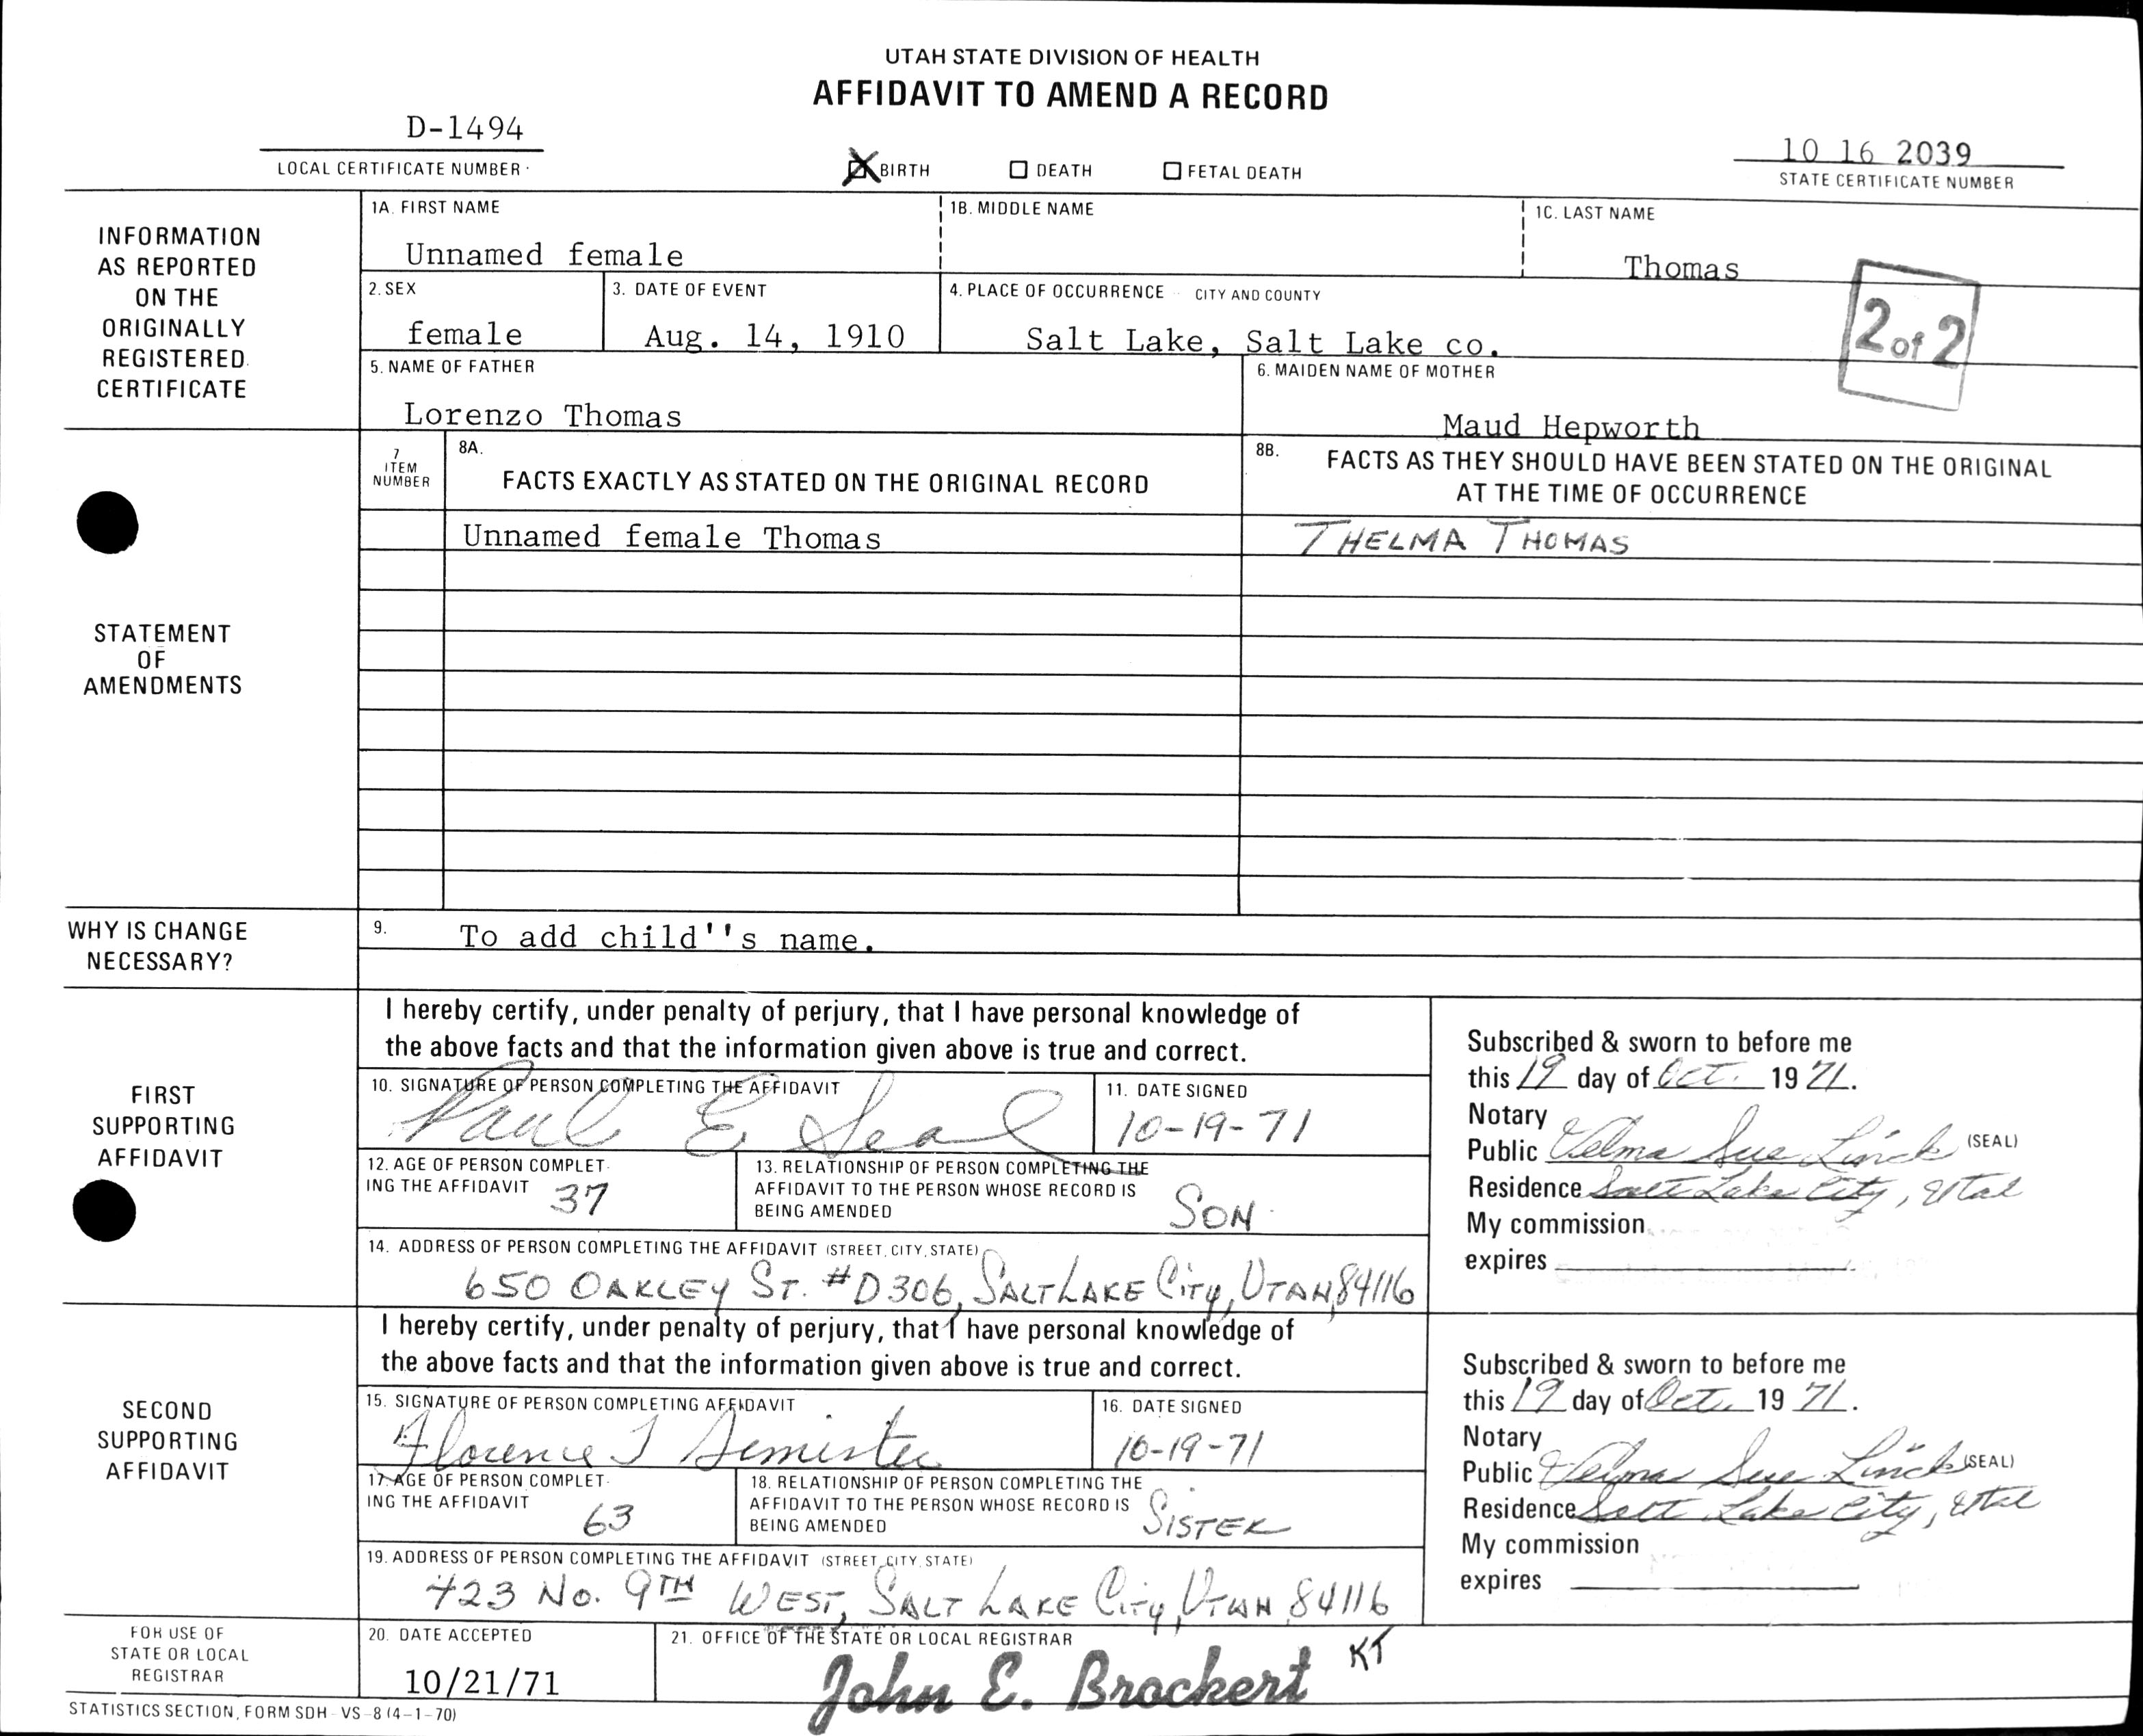 UTAH STATE DIVISION OF HEALTH
AFFIDAVIT TO AMEND A RECORD
D-1494
LOCAL CERTIFICATE NUMBER
BIRTH DEATH FETAL DEATH
10 16 2039
STATE CERTIFICATE NUMBER
INFORMATION
AS REPORTED
ON THE
ORIGINALLY
REGISTERED
CERTIFICATE
1A. FIRST NAME
Unnamed female
1B. MIDDLE NAME
1C. LAST NAME
Thomas
2. SEX
female
3. DATE OF EVENT
Aug. 14, 1910
4. PLACE OF OCCURRENCE CITY AND COUNTY
Salt Lake, Salt Lake co.
2 of 2
5. NAME OF FATHER
Lorenzo Thomas
6. MAIDEN NAME OF MOTHER
Maud Hepworth
STATEMENT
OF
AMENDMENTS
7
ITEM
NUMBER
8A.
FACTS EXACTLY AS STATED ON THE ORIGINAL RECORD
8B.
FACTS AS THEY SHOULD HAVE BEEN STATED ON THE ORIGINAL
AT THE TIME OF OCCURRENCE
Unnamed female Thomas
THELMA THOMAS
WHY IS CHANGE
NECESSARY?
9.
To add child''s name.
FIRST
SUPPORTING
AFFIDAVIT
I hereby certify, under penalty of perjury, that I have personal knowledge of
the above facts and that the information given above is true and correct.
10. SIGNATURE OF PERSON COMPLETING THE AFFIDAVIT
Paul E Seal
11. DATE SIGNED
10-19-71
12. AGE OF PERSON COMPLET-
ING THE AFFIDAVIT 37
13. RELATIONSHIP OF PERSON COMPLETING THE
AFFIDAVIT TO THE PERSON WHOSE RECORD IS
BEING AMENDED
SON
14. ADDRESS OF PERSON COMPLETING THE AFFIDAVIT (STREET, CITY, STATE)
650 OAKLEY ST. #D306, SALT LAKE CITY, UTAH, 84116
Subscribed & sworn to before me
this 19 day of Oct. 1971.
Notary
Public Velma Sue Linck (SEAL)
Residence Salt Lake City, Utah
My commission
expires
SECOND
SUPPORTING
AFFIDAVIT
I hereby certify, under penalty of perjury, that I have personal knowledge of
the above facts and that the information given above is true and correct.
15. SIGNATURE OF PERSON COMPLETING AFFIDAVIT
Florence T
16. DATE SIGNED
10-19-71
17. AGE OF PERSON COMPLET-
ING THE AFFIDAVIT 63
18. RELATIONSHIP OF PERSON COMPLETING THE
AFFIDAVIT TO THE PERSON WHOSE RECORD IS
BEING AMENDED
SISTER
19. ADDRESS OF PERSON COMPLETING THE AFFIDAVIT (STREET, CITY, STATE)
423 No. 9TH WEST, SALT LAKE CITY, UTAH 84116
Subscribed & sworn to before me
this 19 day of Oct. 1971.
Notary
Public Velma Sue Linck (SEAL)
Residence Salt Lake City, Utah
My commission
expires
FOR USE OF
STATE OR LOCAL
REGISTRAR
20. DATE ACCEPTED
10/21/71
21. OFFICE OF THE STATE OR LOCAL REGISTRAR
John E. Brockert KT
STATISTICS SECTION, FORM SDH-VS-8 (4-1-70)